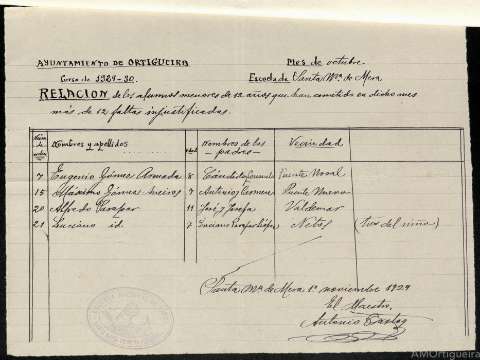 AYUNTAMIENTO DE ORTIGUEIRA
Mes de octubre.
Curso de 1929-30.
Escuela de Santa Mª. de Mera
RELACION de los alumnos menores de 12 años que han cometido en dicho mes
más de 12 faltas injustificadas.
Nombres y apellidos
Nombres de los
padres
Vecindad
7 Eugenio Gómez Armada 8 Puente Noval
15 Maximino Gómez 7 Antonio y Carmen Puente Nuevo
20 Alfredo Parapar 11 José y Josefa Valdemar
21 Luciano id. 7 Luciano Parapar Netos (tío del niño)
Santa Mª. de Mera 1º noviembre 1929
El Maestro,
Antonio
AMOrtigueira